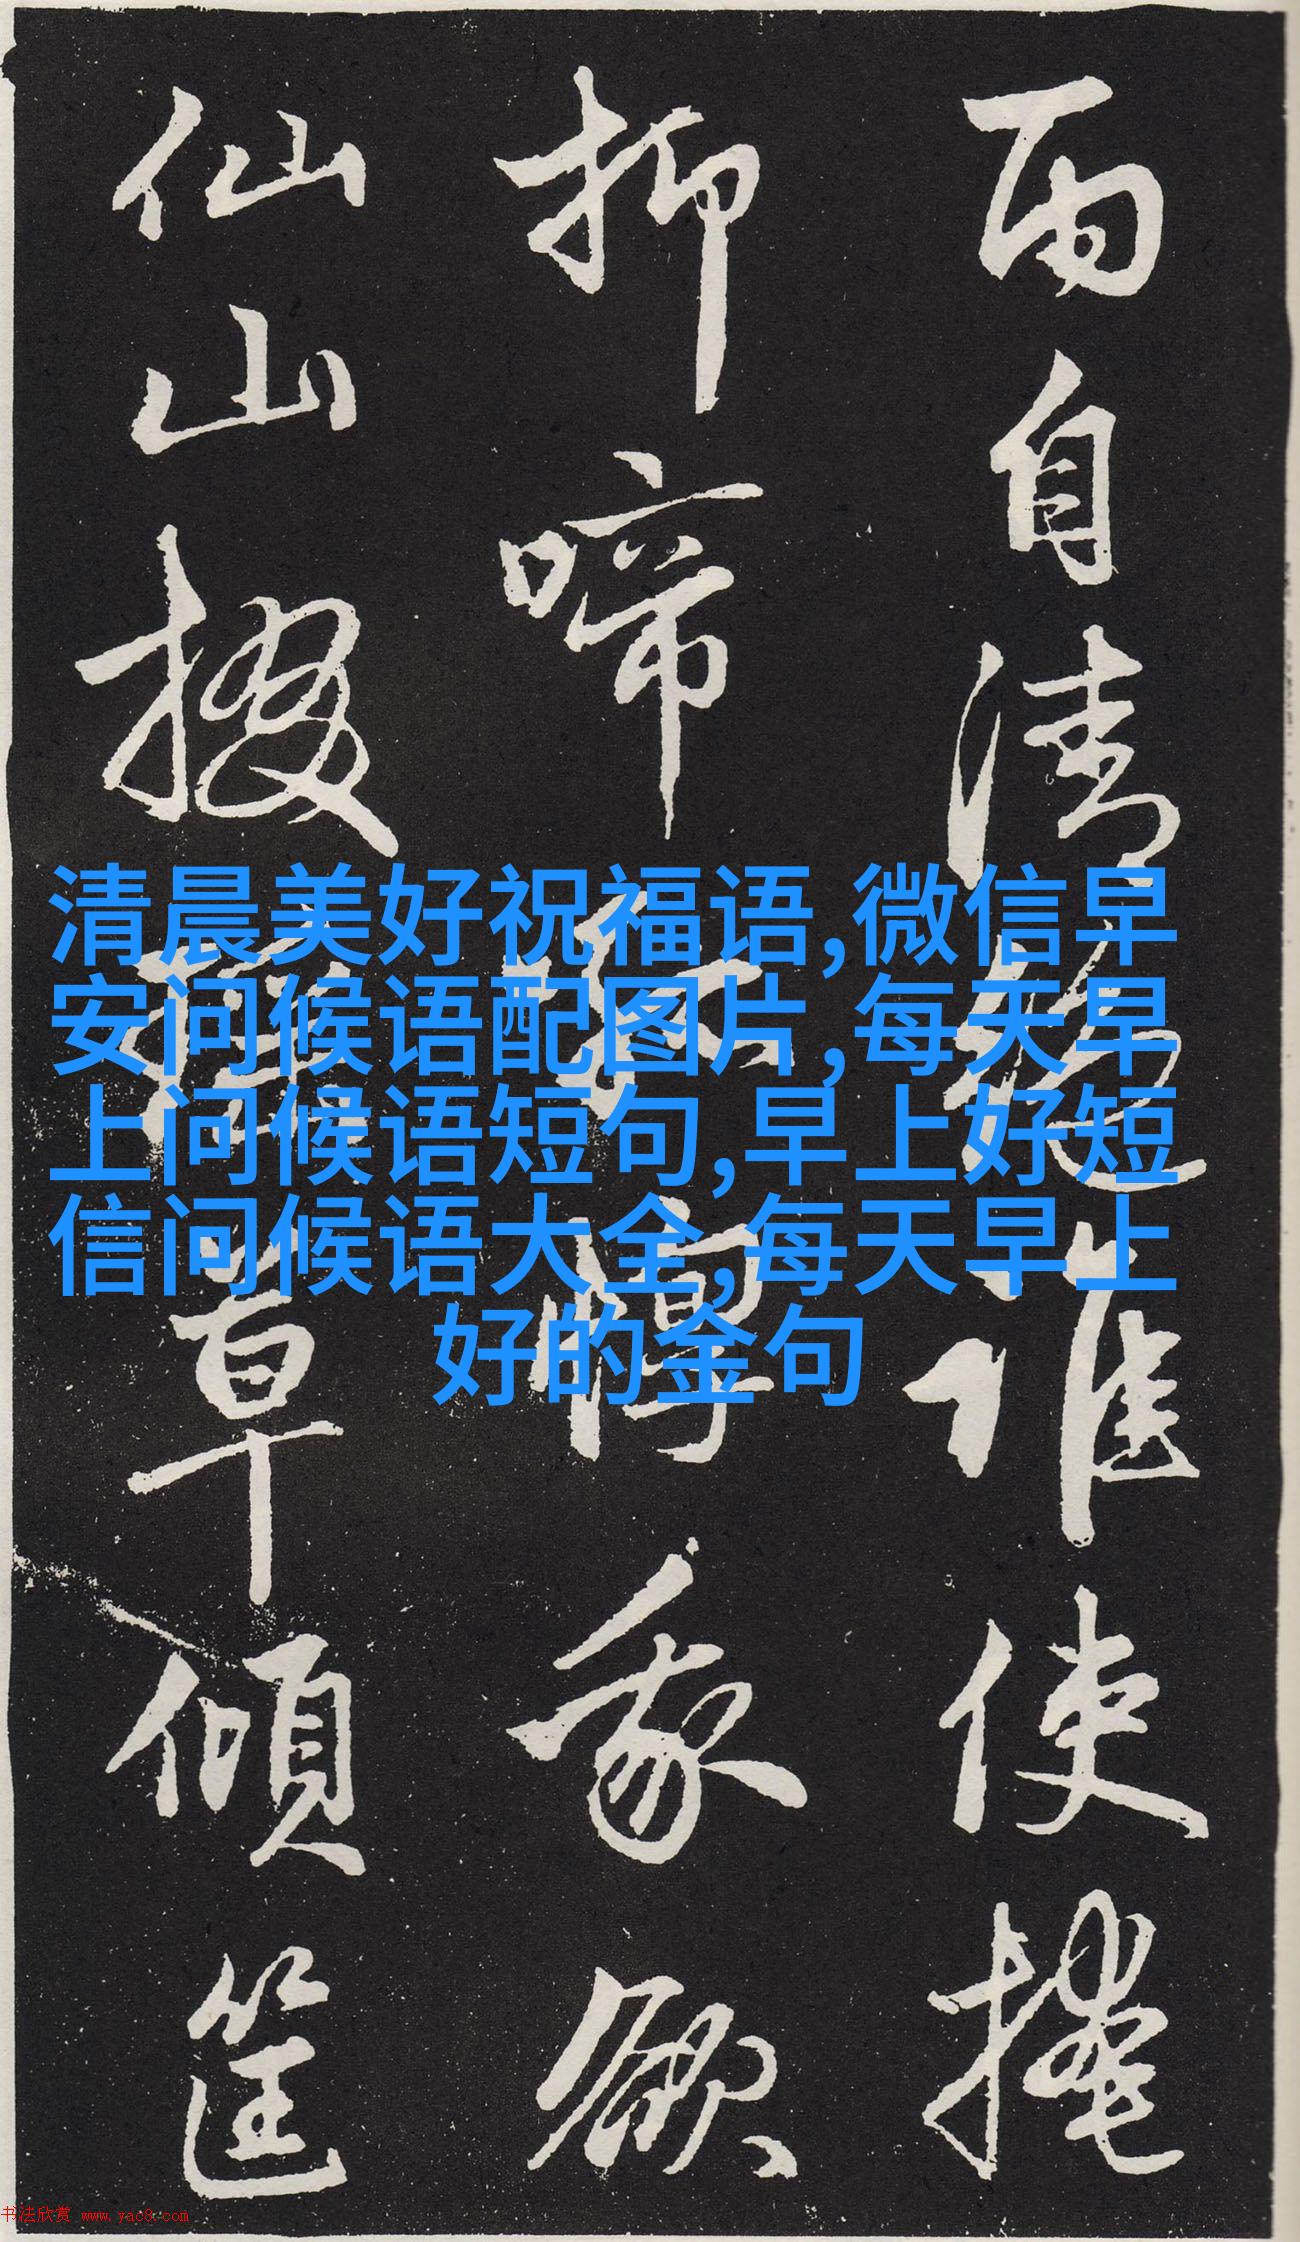 雨自清絶誰使掩
抑啼
我欲
仙山掇
草傾筐
清晨美好祝福语,微信早
安问候语配图片,每天早
上问候语短句,早上好短
信问候语大全,每天早上
好的金句
书法欣赏 www.yac8.com